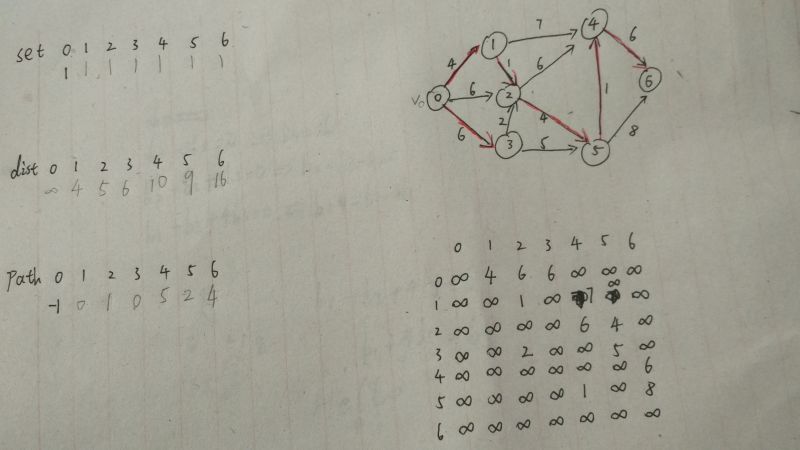 set 0 1 2 3 4 5 6
1 1 1 1 1 1 1
dist 0 1 2 3 4 5 6
∞ 4 5 6 10 9 16
Path 0 1 2 3 4 5 6
-1 0 1 0 5 2 4
7
4
1
6
4
1
6
V0
0
6
2
6
6
2
4
1
3
5
5
8
0 1 2 3 4 5 6
0 ∞ 4 6 6 ∞ ∞ ∞
1 ∞ ∞ 1 ∞ 7 ∞ ∞
2 ∞ ∞ ∞ ∞ 6 4 ∞
3 ∞ ∞ 2 ∞ ∞ 5 ∞
4 ∞ ∞ ∞ ∞ ∞ ∞ 6
5 ∞ ∞ ∞ ∞ 1 ∞ 8
6 ∞ ∞ ∞ ∞ ∞ ∞ ∞